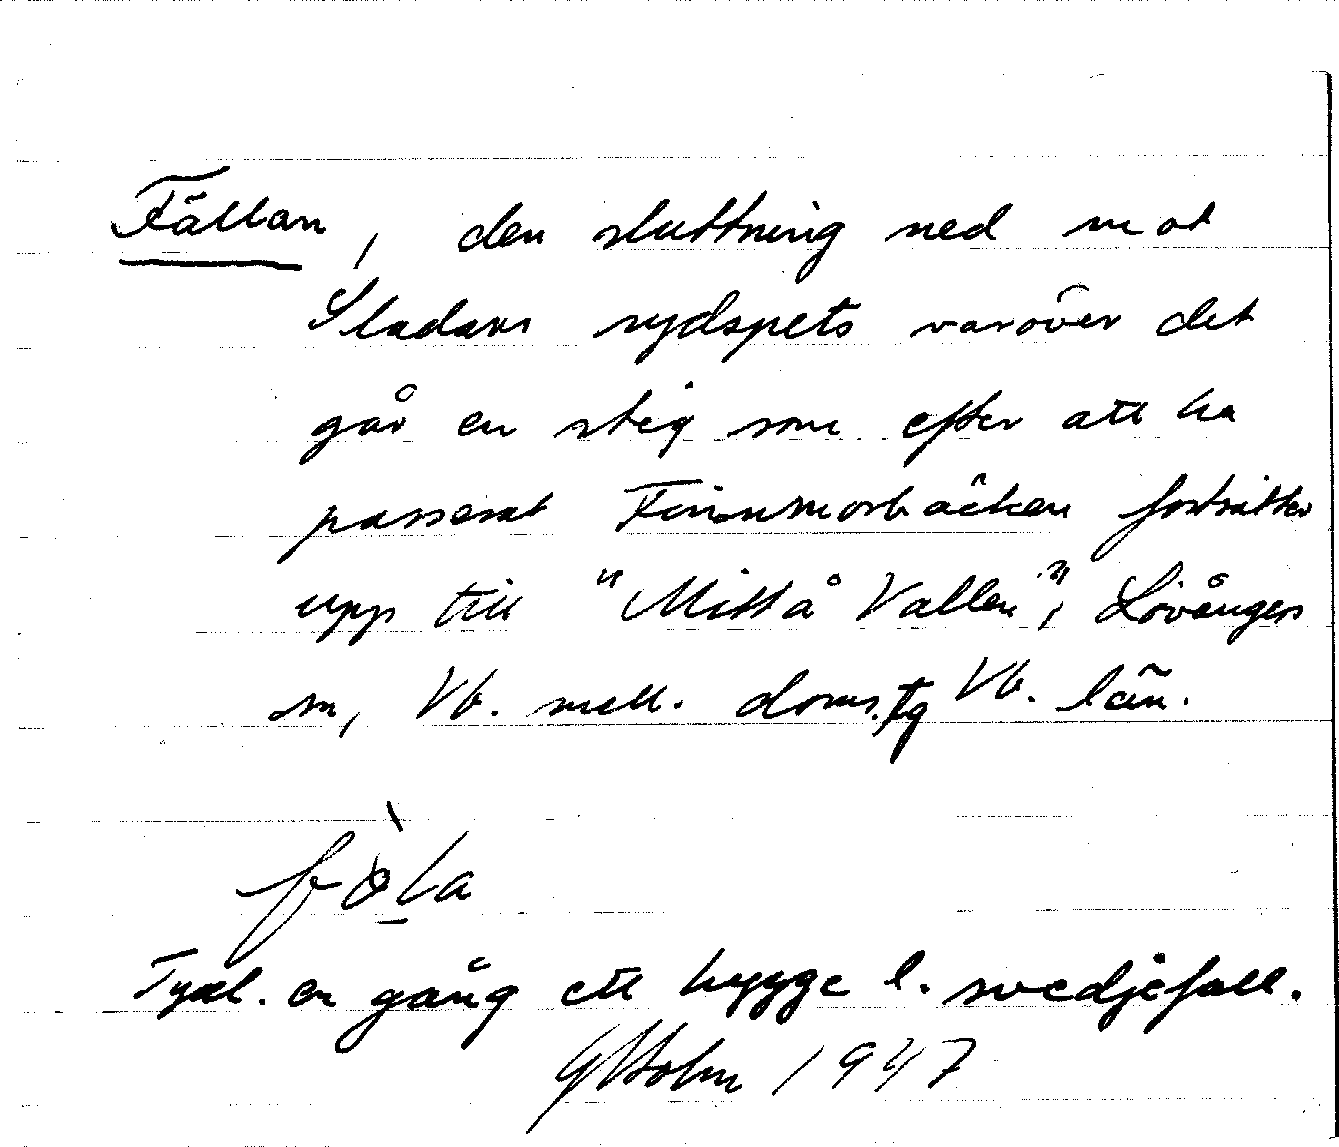 Fällan, den sluttning ned mot
Sladans sydspets varöver det
går en stig som efter att ha
passerat Finnmorbäcken fortsätter
upp till "Mittå Vallen", Lövångers
sn, Vb. mell. doms.tg Vb. län.
Tydl. en gång ett hygge l. svedjefall.
G Holm 1947